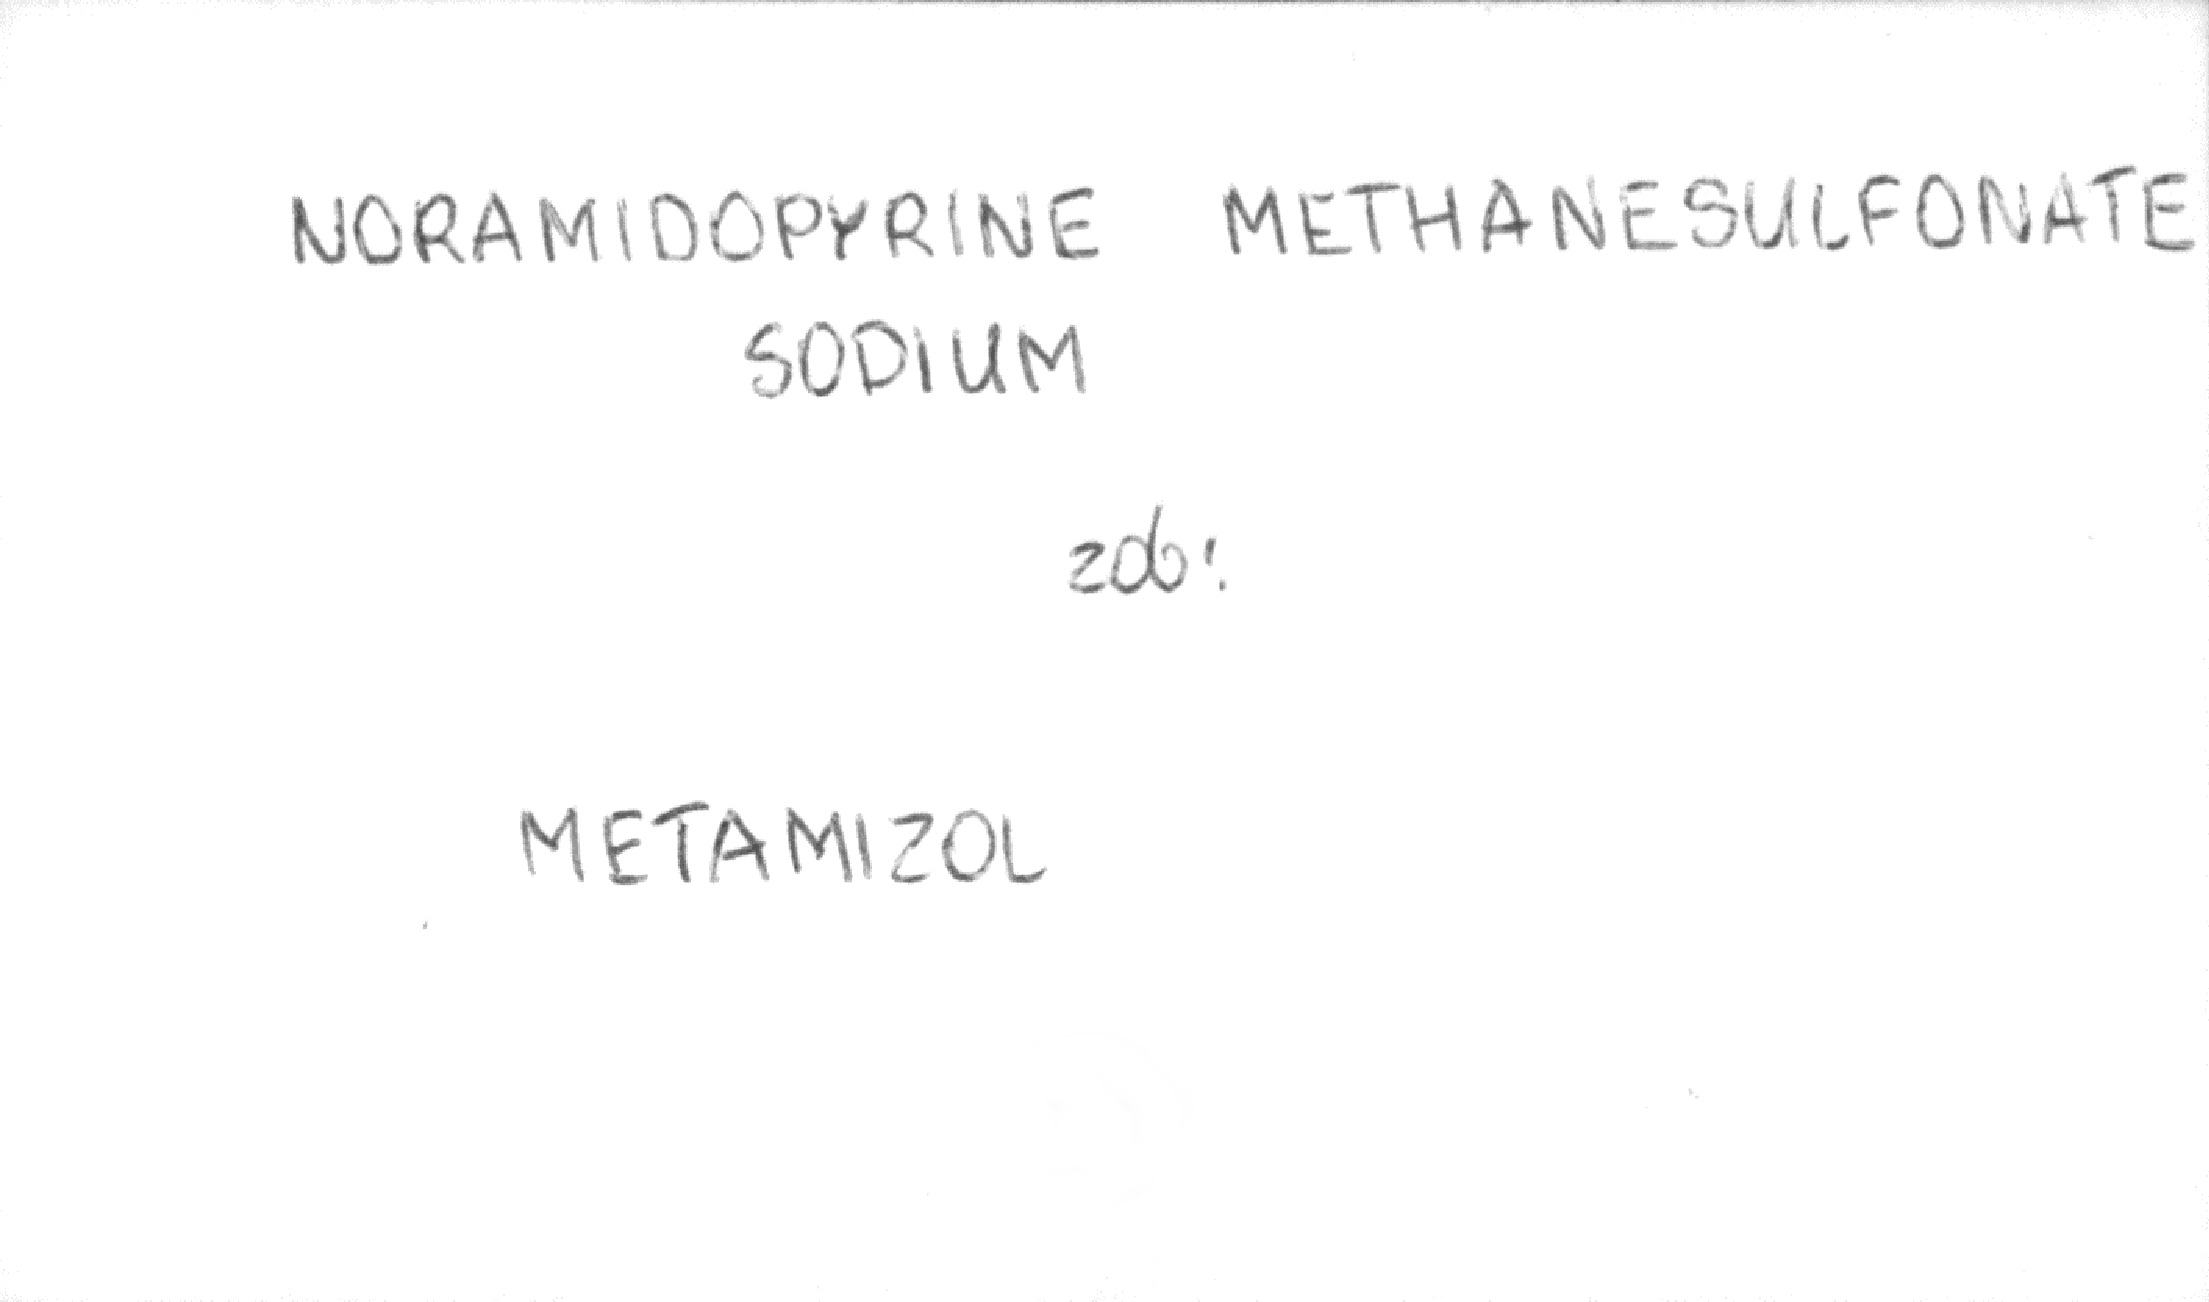 NORAMIDOPYRINE METHANESULFONATE
SODIUM
zob:
METAMIZOL